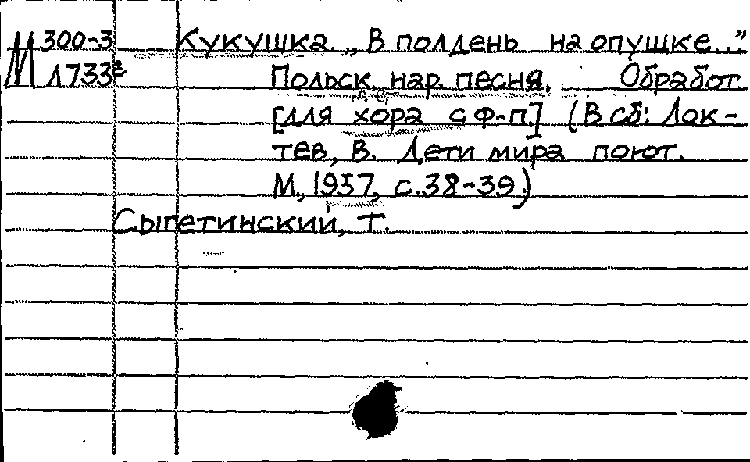 М 300-3 Кукушка. „В полдень на опушке..."
Л733² Польск. нар. песня. Обработ.
[для хора с ф-п] (В сб: Лок-
тев, В. Дети мира поют.
М., 1957, с.38-39.)
Сыгетинский, Т.